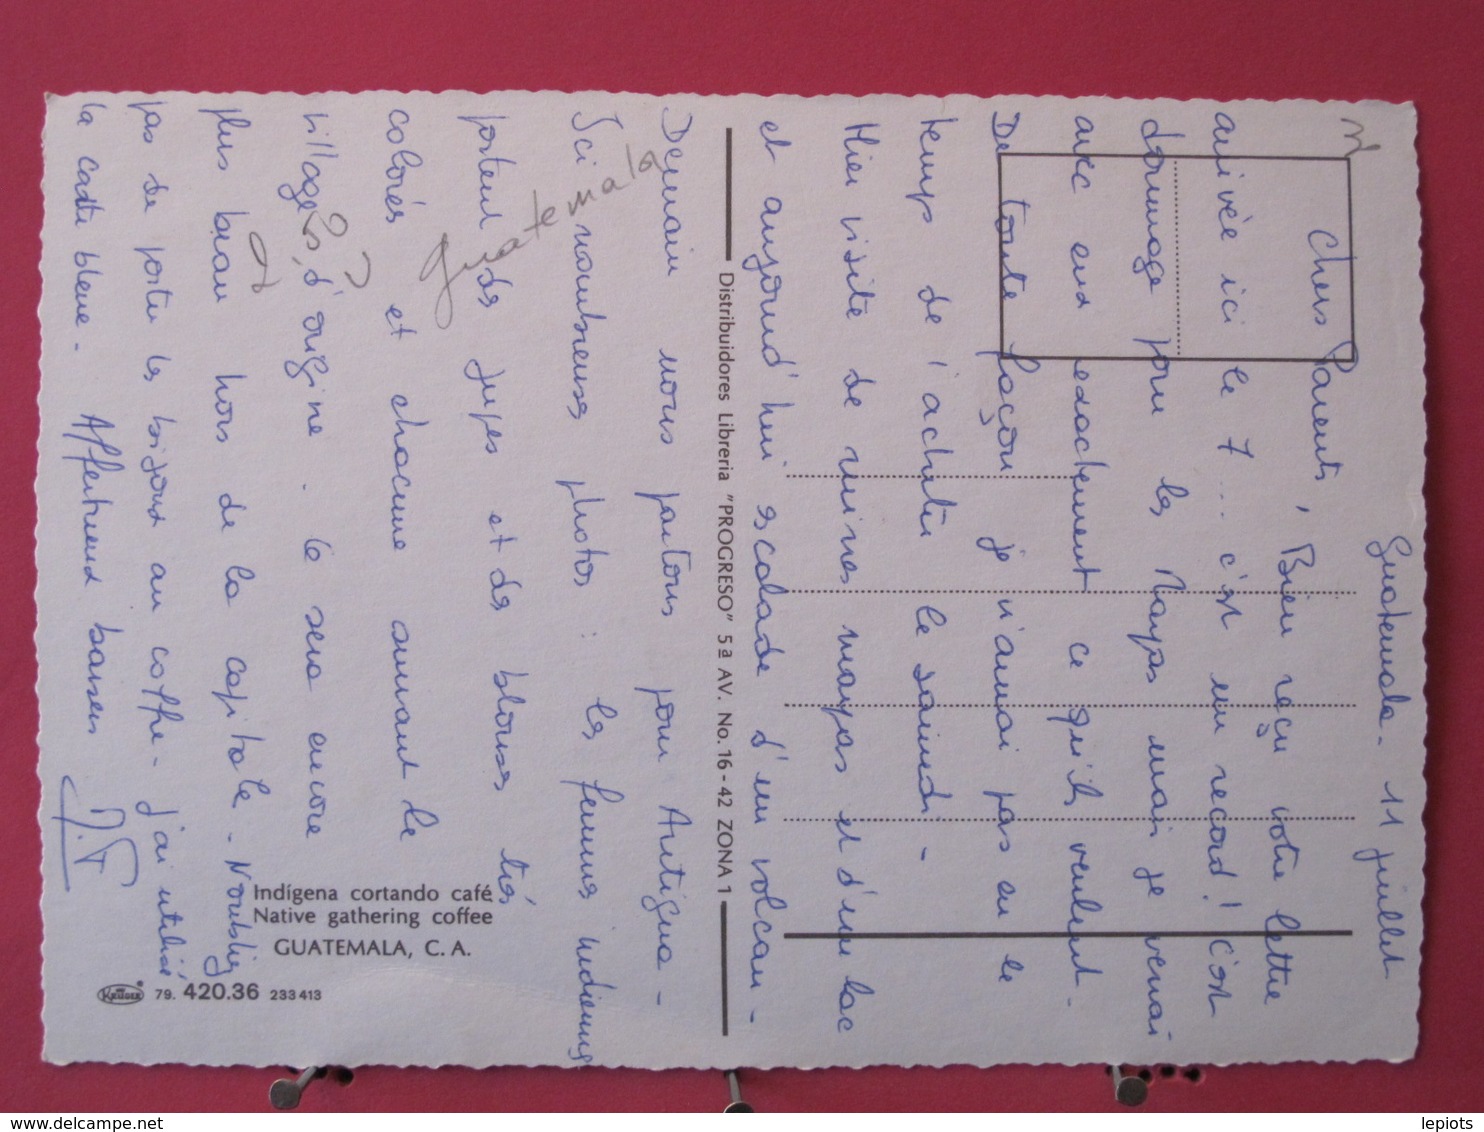 Guatemala - 11 juillet
Chers Parents, Bien reçu votre lettre
arrivée ici le 7... c'est un record! C'est
dommage pour les Mayas mais je verrai
avec eux exactement ce qu'ils veulent.
De toute façon je n'aurai pas eu le
temps de l'acheter le samedi -
Hier visite de ruines mayas et d'un lac
et aujourd'hui escalade d'un volcan -
Demain nous partons pour Antigua -
Ici nombreuses photos : les femmes indiennes
portent des jupes et des blouses très
colorés et chacune suivant le
village, d'origine. Ce sera encore
plus beau hors de la capitale - N'oubliez
pas de porter les bijoux au coffre - j'ai utilisé
la carte bleue - Affectueux baisers
Guatemala
Distribuidores Libreria "PROGRESO" 5a AV. No. 16-42 ZONA 1
Indígena cortando café
Native gathering coffee
GUATEMALA, C. A.
KRÜGER 79. 420.36 233413
www.delcampe.net
lepiots